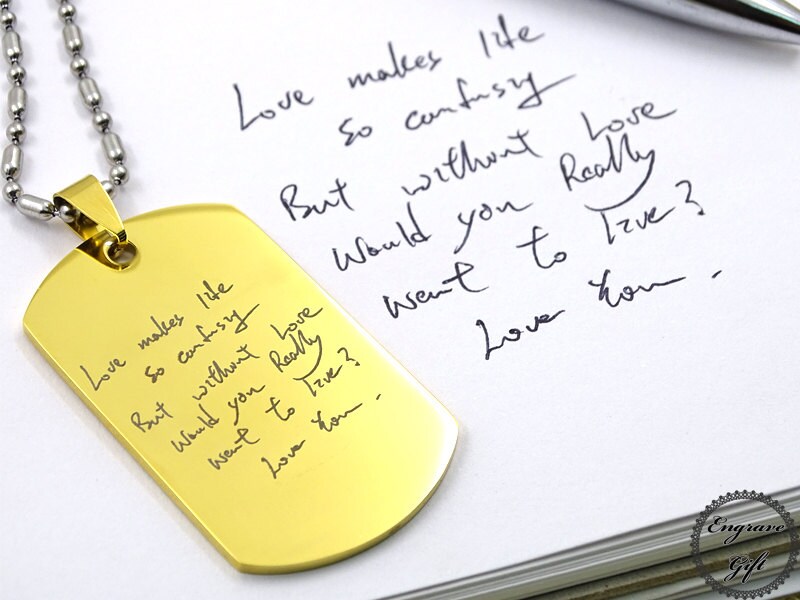 Love makes life
so confusing
But without Love
Would you Really
want to live?
Love You.
Love makes life
so confusing
But without Love
Would you Really
want to live?
Love You.
Engrave
Gift